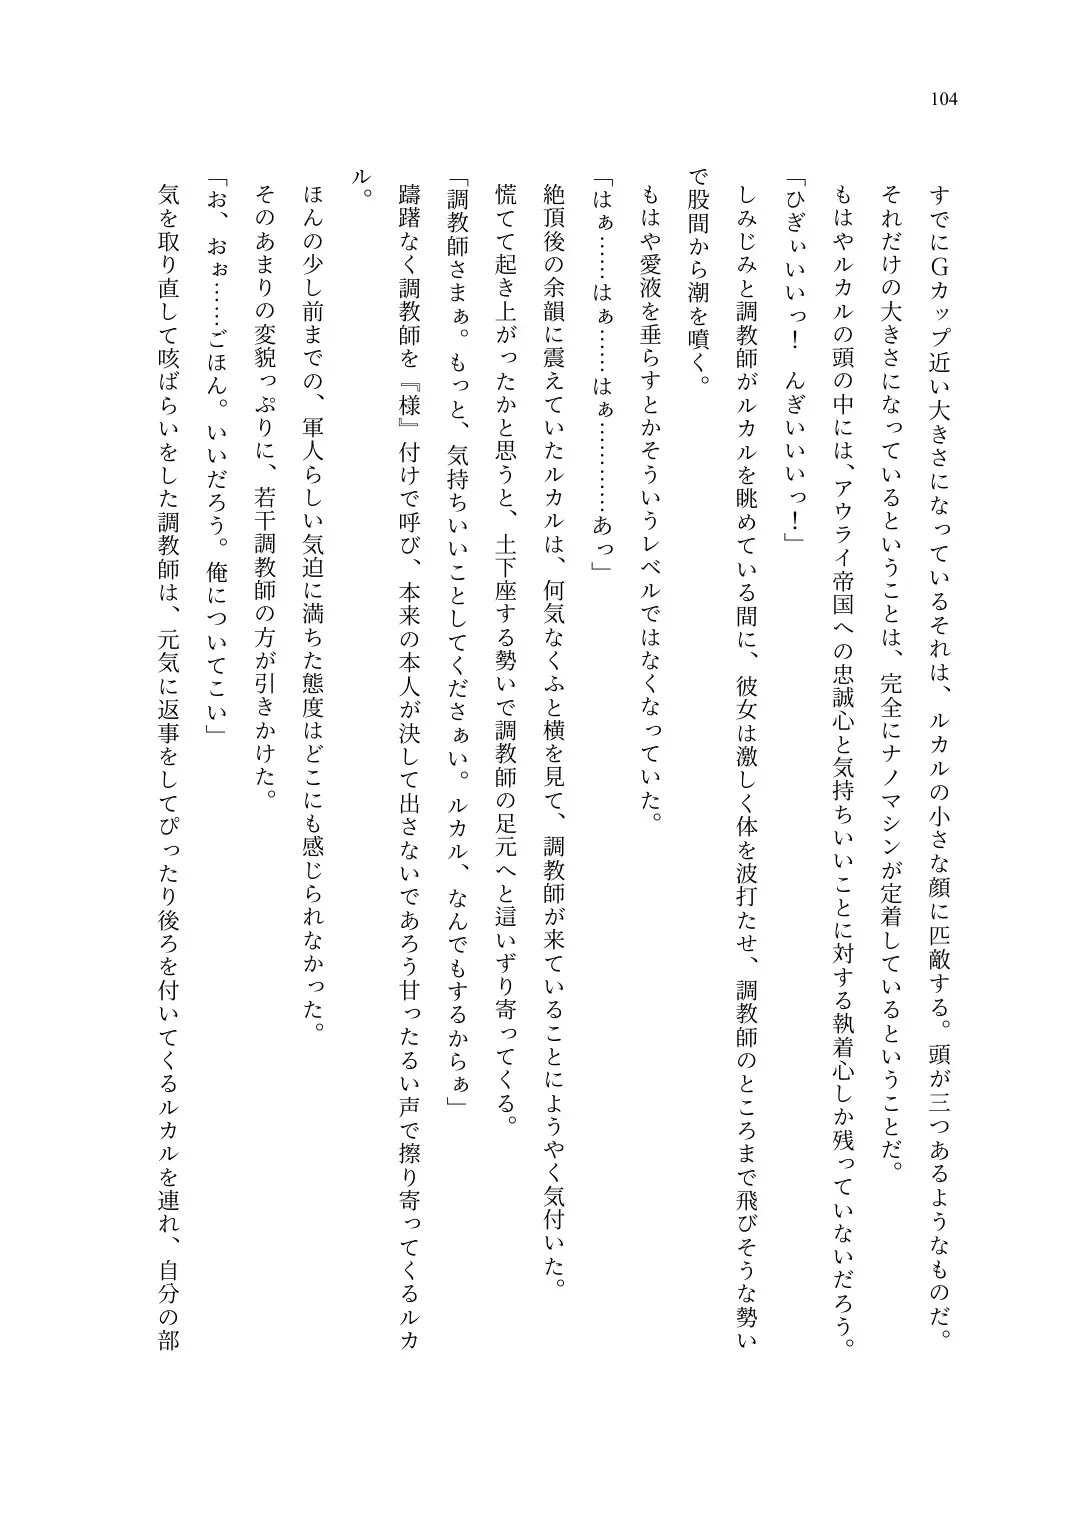 104
すでにGカップ近い大きさになっているそれは、ルカルの小さな顔に匹敵する。頭が三つあるようなものだ。
それだけの大きさになっているということは、完全にナノマシンが定着しているということだ。
もはやルカルの頭の中には、アウライ帝国への忠誠心と気持ちいいことに対する執着心しか残っていないだろう。
「ひぎぃいいっ！　んぎいいいっ！」
しみじみと調教師がルカルを眺めている間に、彼女は激しく体を波打たせ、調教師のところまで飛びそうな勢い
で股間から潮を噴く。
もはや愛液を垂らすとかそういうレベルではなくなっていた。
「はぁ……はぁ……はぁ…………あっ」
絶頂後の余韻に震えていたルカルは、何気なくふと横を見て、調教師が来ていることにようやく気付いた。
慌てて起き上がったかと思うと、土下座する勢いで調教師の足元へと這いずり寄ってくる。
「調教師さまぁ。もっと、気持ちいいことしてくださぁい。ルカル、なんでもするからぁ」
躊躇なく調教師を『様』付けで呼び、本来の本人が決して出さないであろう甘ったるい声で擦り寄ってくるルカ
ル。
ほんの少し前までの、軍人らしい気迫に満ちた態度はどこにも感じられなかった。
そのあまりの変貌っぷりに、若干調教師の方が引きかけた。
「お、おぉ……ごほん。いいだろう。俺についてこい」
気を取り直して咳ばらいをした調教師は、元気に返事をしてぴったり後ろを付いてくるルカルを連れ、自分の部